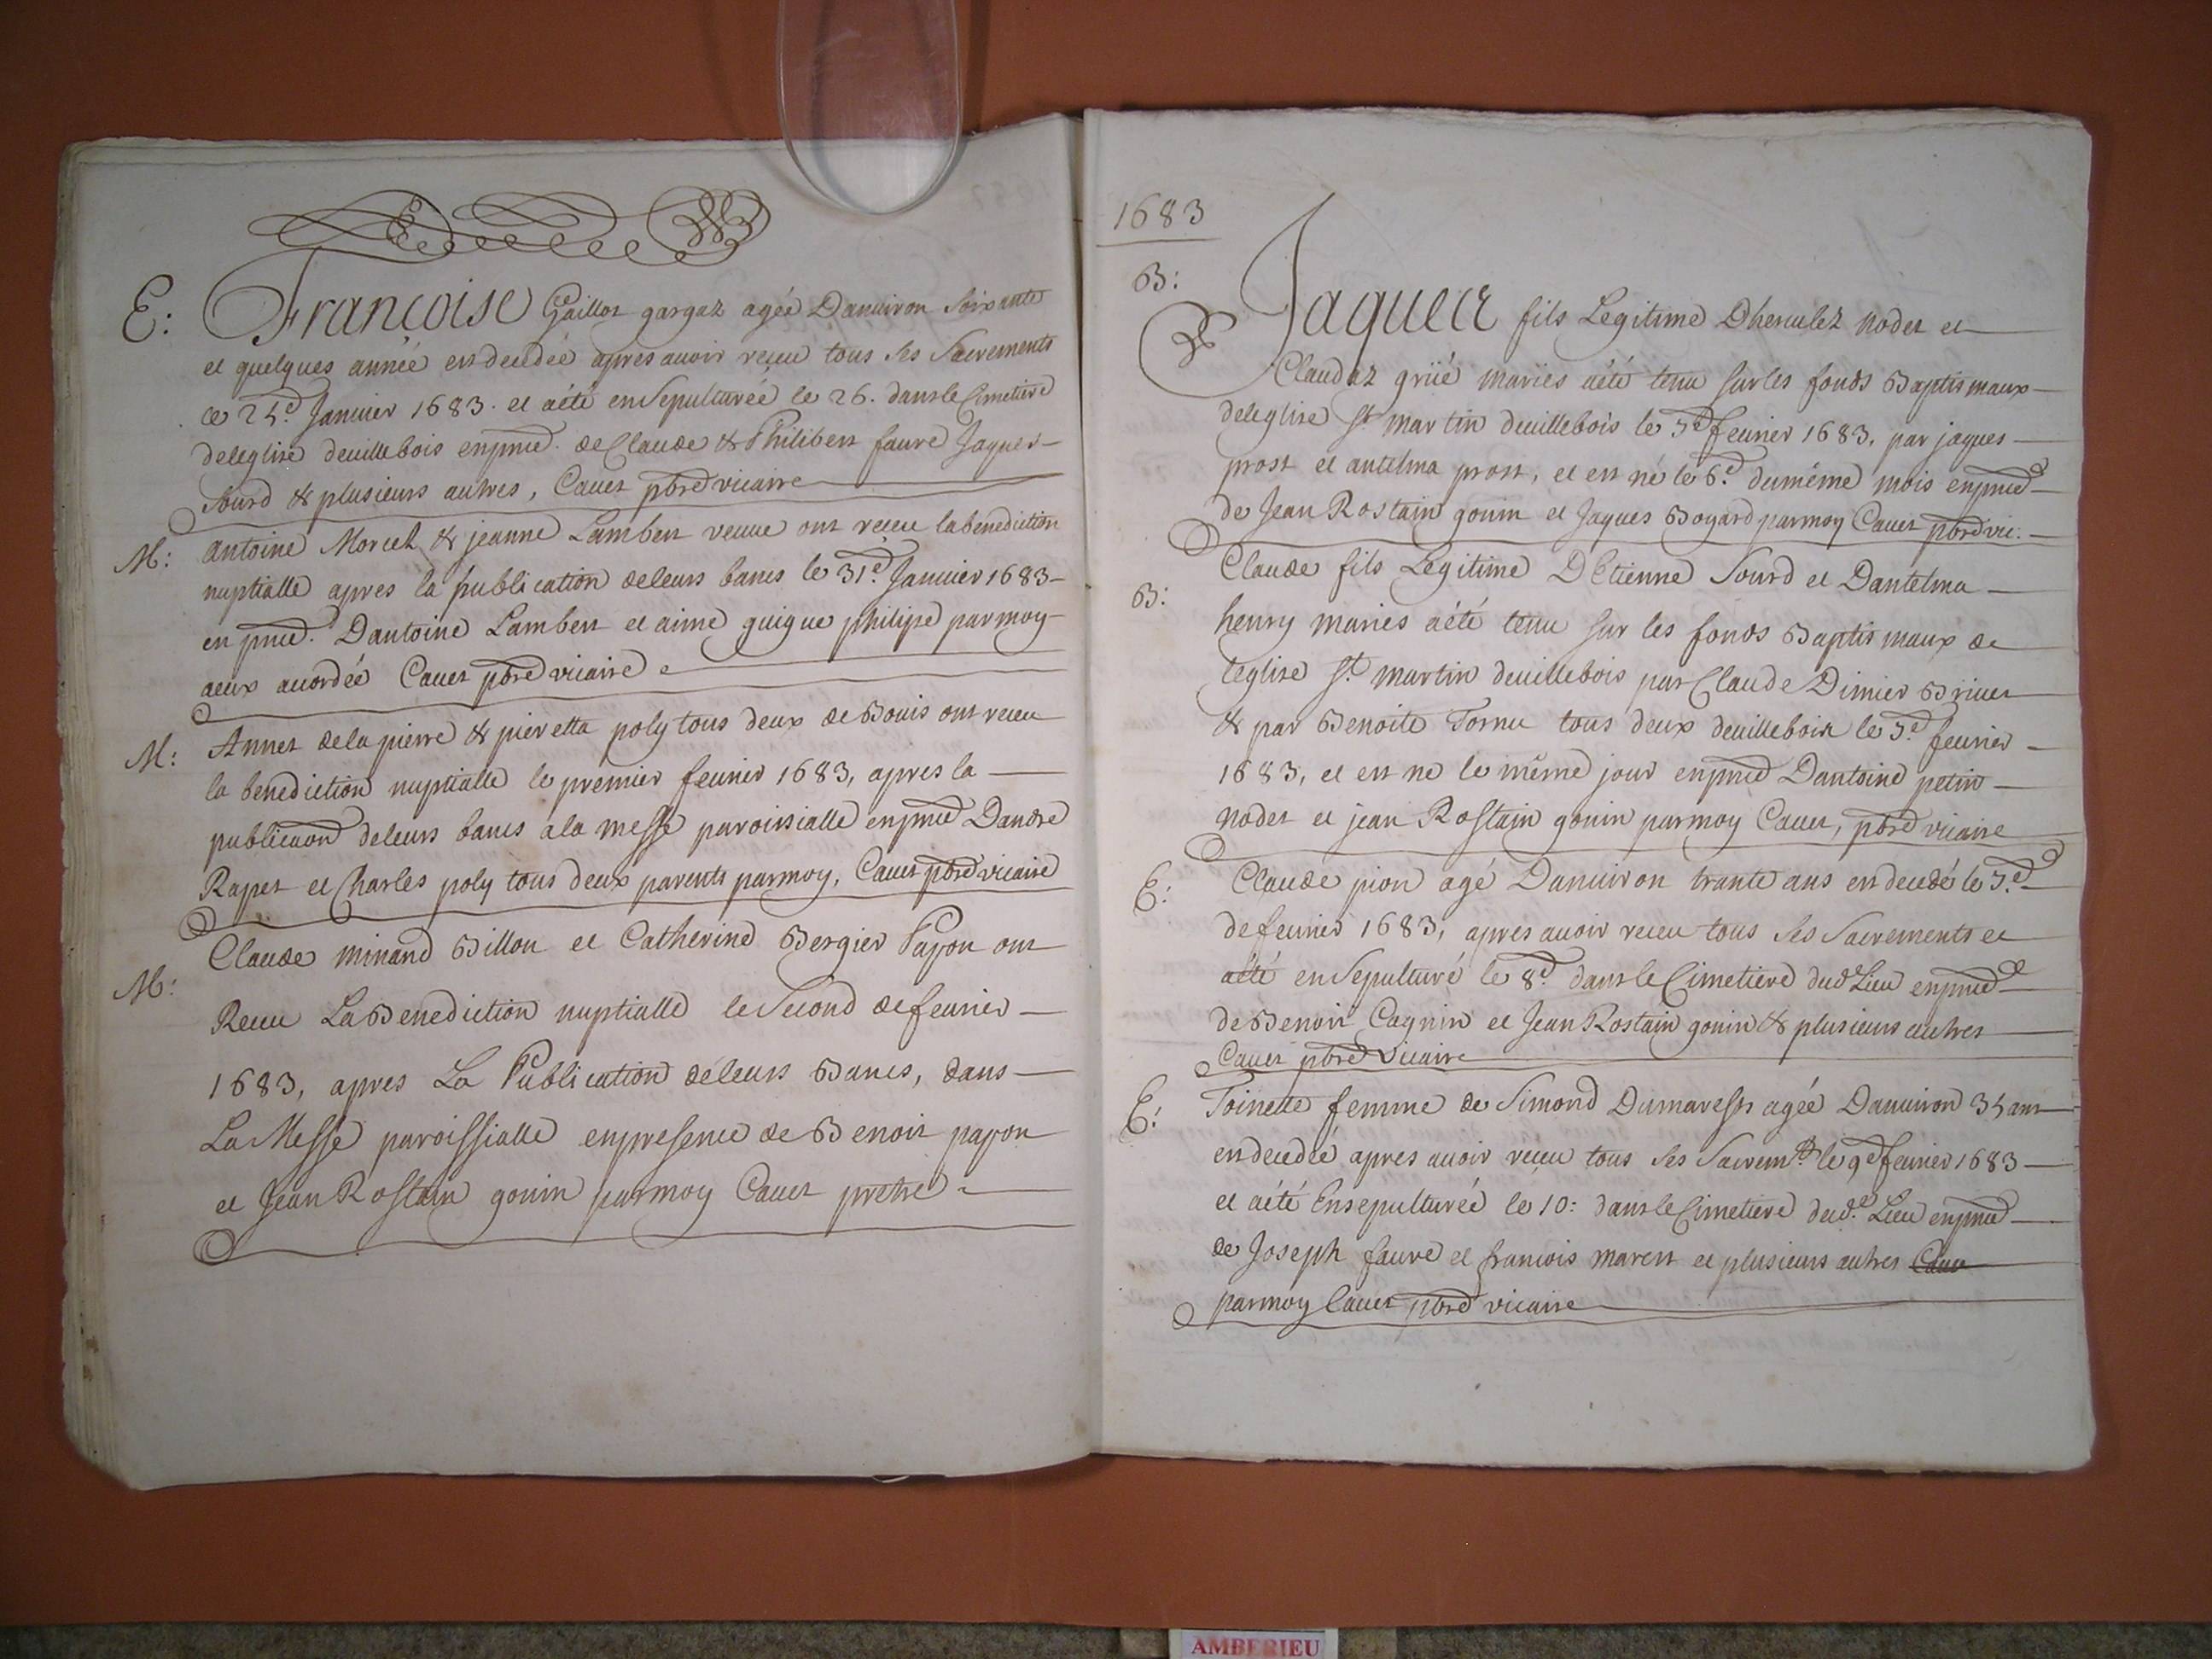 E: Françoise Gaillot gargaz agée Danuiron Soixante
et quelques année est decedée apres auoir reçeu tous ses Sacrements
ce 25e Januier 1683. et aété enSepulturée le 26. dansle Cimetiere
deleglise deuillebois enpnce. de Claude & Philibert faure Jaques
Sourd & plusieurs autres, Cauet pbre vicaire
M: Antoine Morcel & jeanne Lambert veuue ont reçeu labenediction
nuptialle apres la publication deleurs bancs le 31e. Januier 1683
en pnce. Dantoine Lambert et aimé guigue philipe parmoy
aeux acordée Cauet pbre vicaire
M: Annet dela pierre & pieretta poly tous deux de Bouis ont receu
la benediction nuptialle le premier feurier 1683, apres la
publicaon deleurs bancs ala messe paroissialle enpnce Dandre
Rapet et Charles poly tous deux parents parmoy, Cauet pbre vicaire
M: Claude minand Billon et Catherine Bergier Papon ont
Receu La Benediction nuptialle le Second de feurier
1683, apres La Publication deleurs Bancs, dans
La Messe paroissialle enpresence de Benoit papon
et Jean Rostain gonin parmoy Cauet prêtre
1683
B: Jaques fils Legitime Dherculez nodet et
Claudaz grüé mariés aété tenu sur les fonds Baptismaux
deleglise St martin deuillebois le 7e feurier 1683, par jaques
prost et antelma prost, et est né le 6e. dumême mois enpnce
de Jean Rostain gonin et Jaques Bogard parmoy Cauet pbre vic.
B: Claude fils Legitime DEtienne Sourd et Dantelma
henry mariés aété tenu sur les fonds Baptismaux de
leglise St. martin deuillebois par Claude Dimier Briuet
& par Benoite Tornu tous deux deuillebois le 7e. feurier
1683, et est ne le même jour enpnce Dantoine petin
nodet et jean Rostain gonin parmoy Cauet, pbre vicaire
E: Claude pion agé Danuiron trante ans est decedé le 7e
de feurier 1683, apres auoir receu tous ses Sacrements et
aété enSepulturé le 8e. dansle Cimetiere dud. Lieu enpnce
de Benoit Cagnin et Jean Rostain gonin & plusieurs autres
Cauet pbre Vicaire
E: Toinette femme de Simond Dumarest agée Danuiron 35 ans
est decedée apres auoir reçeu tous ses Sacremts. le 9e feurier 1683
et aété Ensepulturée le 10: dansle Cimetiere dud. Lieu enpnce
de Joseph faure et francois marest et plusieurs autres
parmoy Cauet pbre vicaire
AMBERIEU